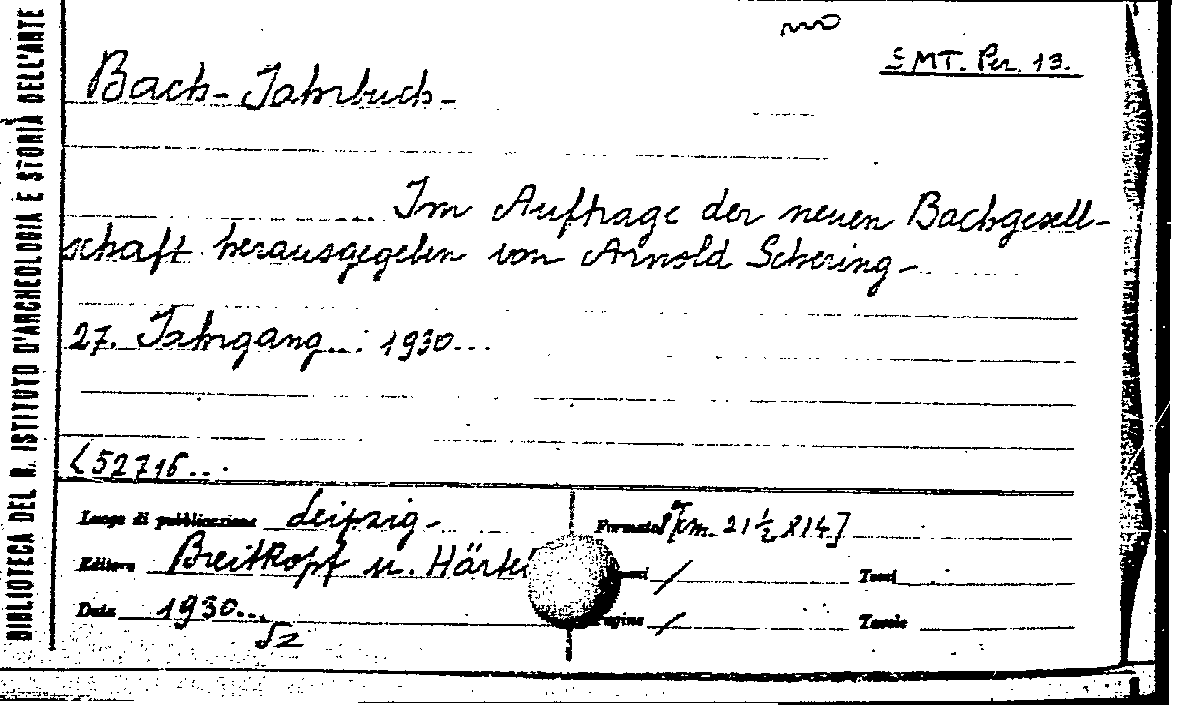 BIBLIOTECA DEL R. ISTITUTO D'ARCHEOLOGIA E STORIA DELL'ARTE
MT. Per. 13.
Bach-Jahrbuch-
Im Auftrage der neuen Bachgesell-
schaft herausgegeben von Arnold Schering-
27. Jahrgang..: 1930...
52716...
Luogo di pubblicazione Leipzig-
Formato 8º [cm. 21½ x 14]
Editore Breitkopf u. Härtel
/ Tomi
Data 1930...
Pagine / Tavole